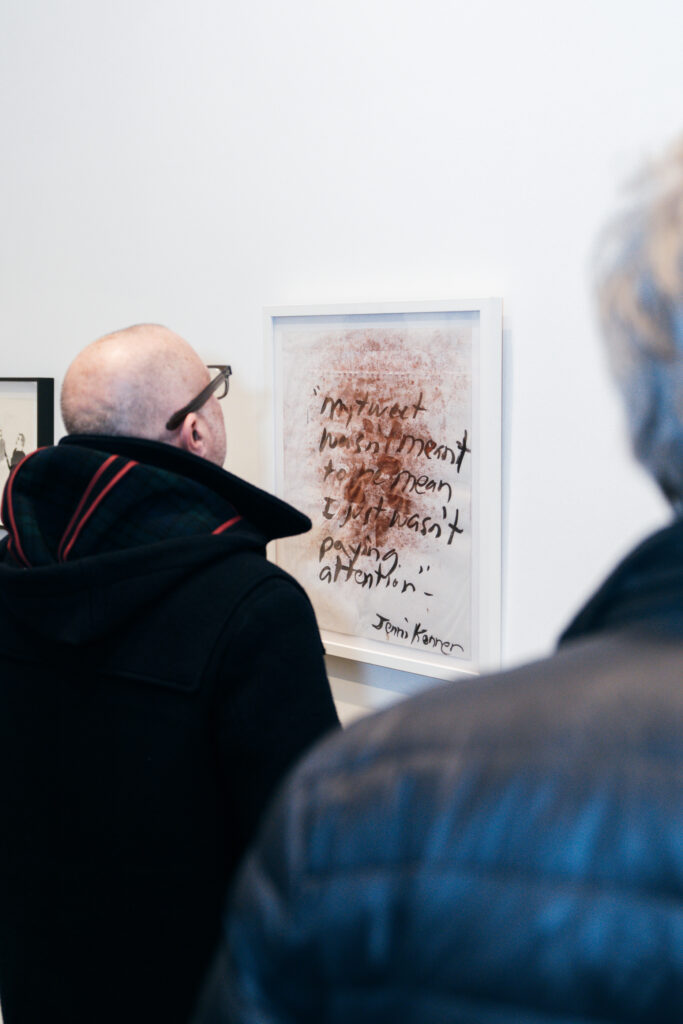 "my tweet
wasn't meant
to be mean
I just wasn't
paying
attention" -
Jenni Konner